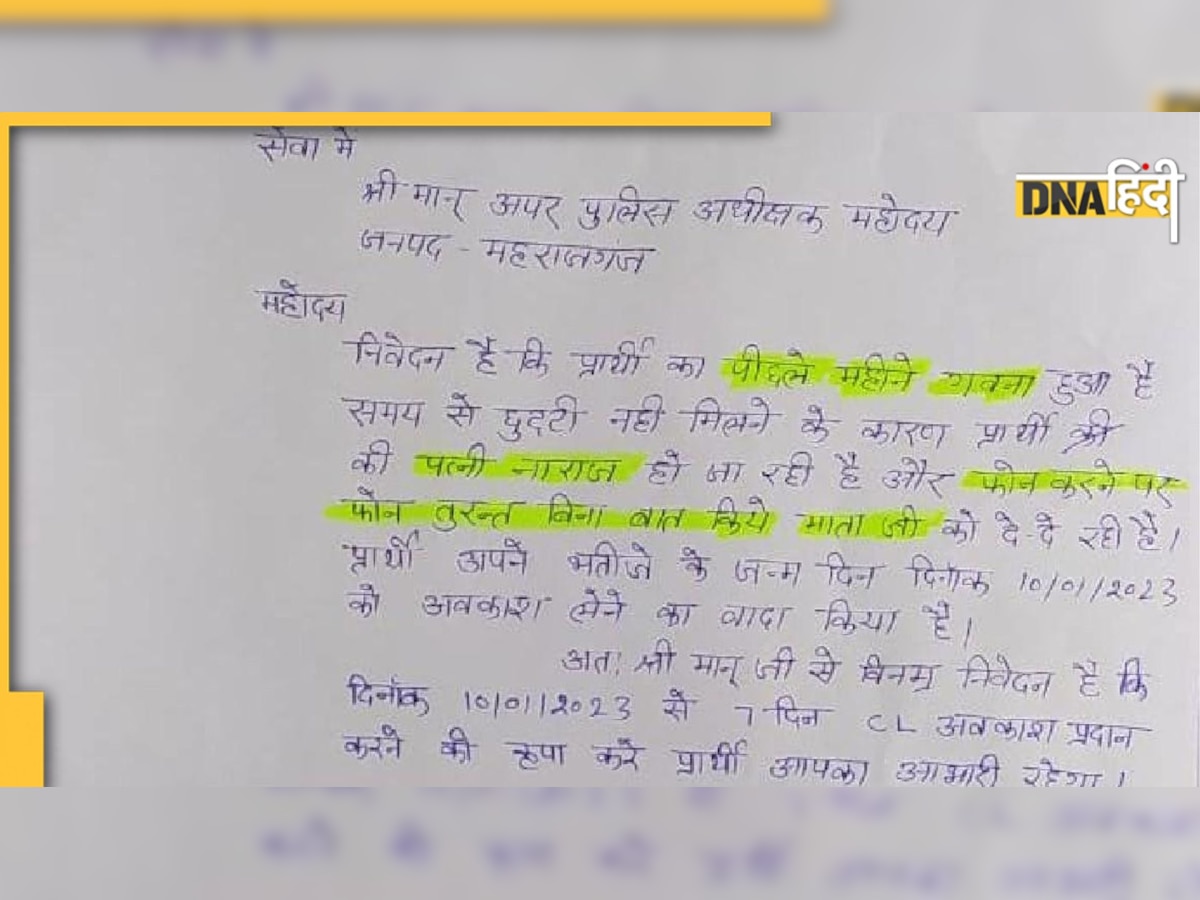 सेवा में
DNA हिंदी
श्री मान् अपर पुलिस अधीक्षक महोदय
जनपद - महराजगंज
महोदय
निवेदन है कि प्रार्थी का पीछले महीने गवना हुआ है
समय से छुट्टी नही मिलने के कारण प्रार्थी की
की पत्नी नाराज हो जा रही है और फोन करने पर
फोन तुरन्त बिना बात किये माता जी को दे-दे रही है।
प्रार्थी अपने भतीजे के जन्म दिन दिनांक 10/01/2023
को अवकाश लेने का वादा किया है।
अतः श्री मान् जी से विनम्र निवेदन है कि
दिनांक 10/01/2023 से 7 दिन CL अवकाश प्रदान
करने की कृपा करे प्रार्थी आपका आभारी रहेगा।